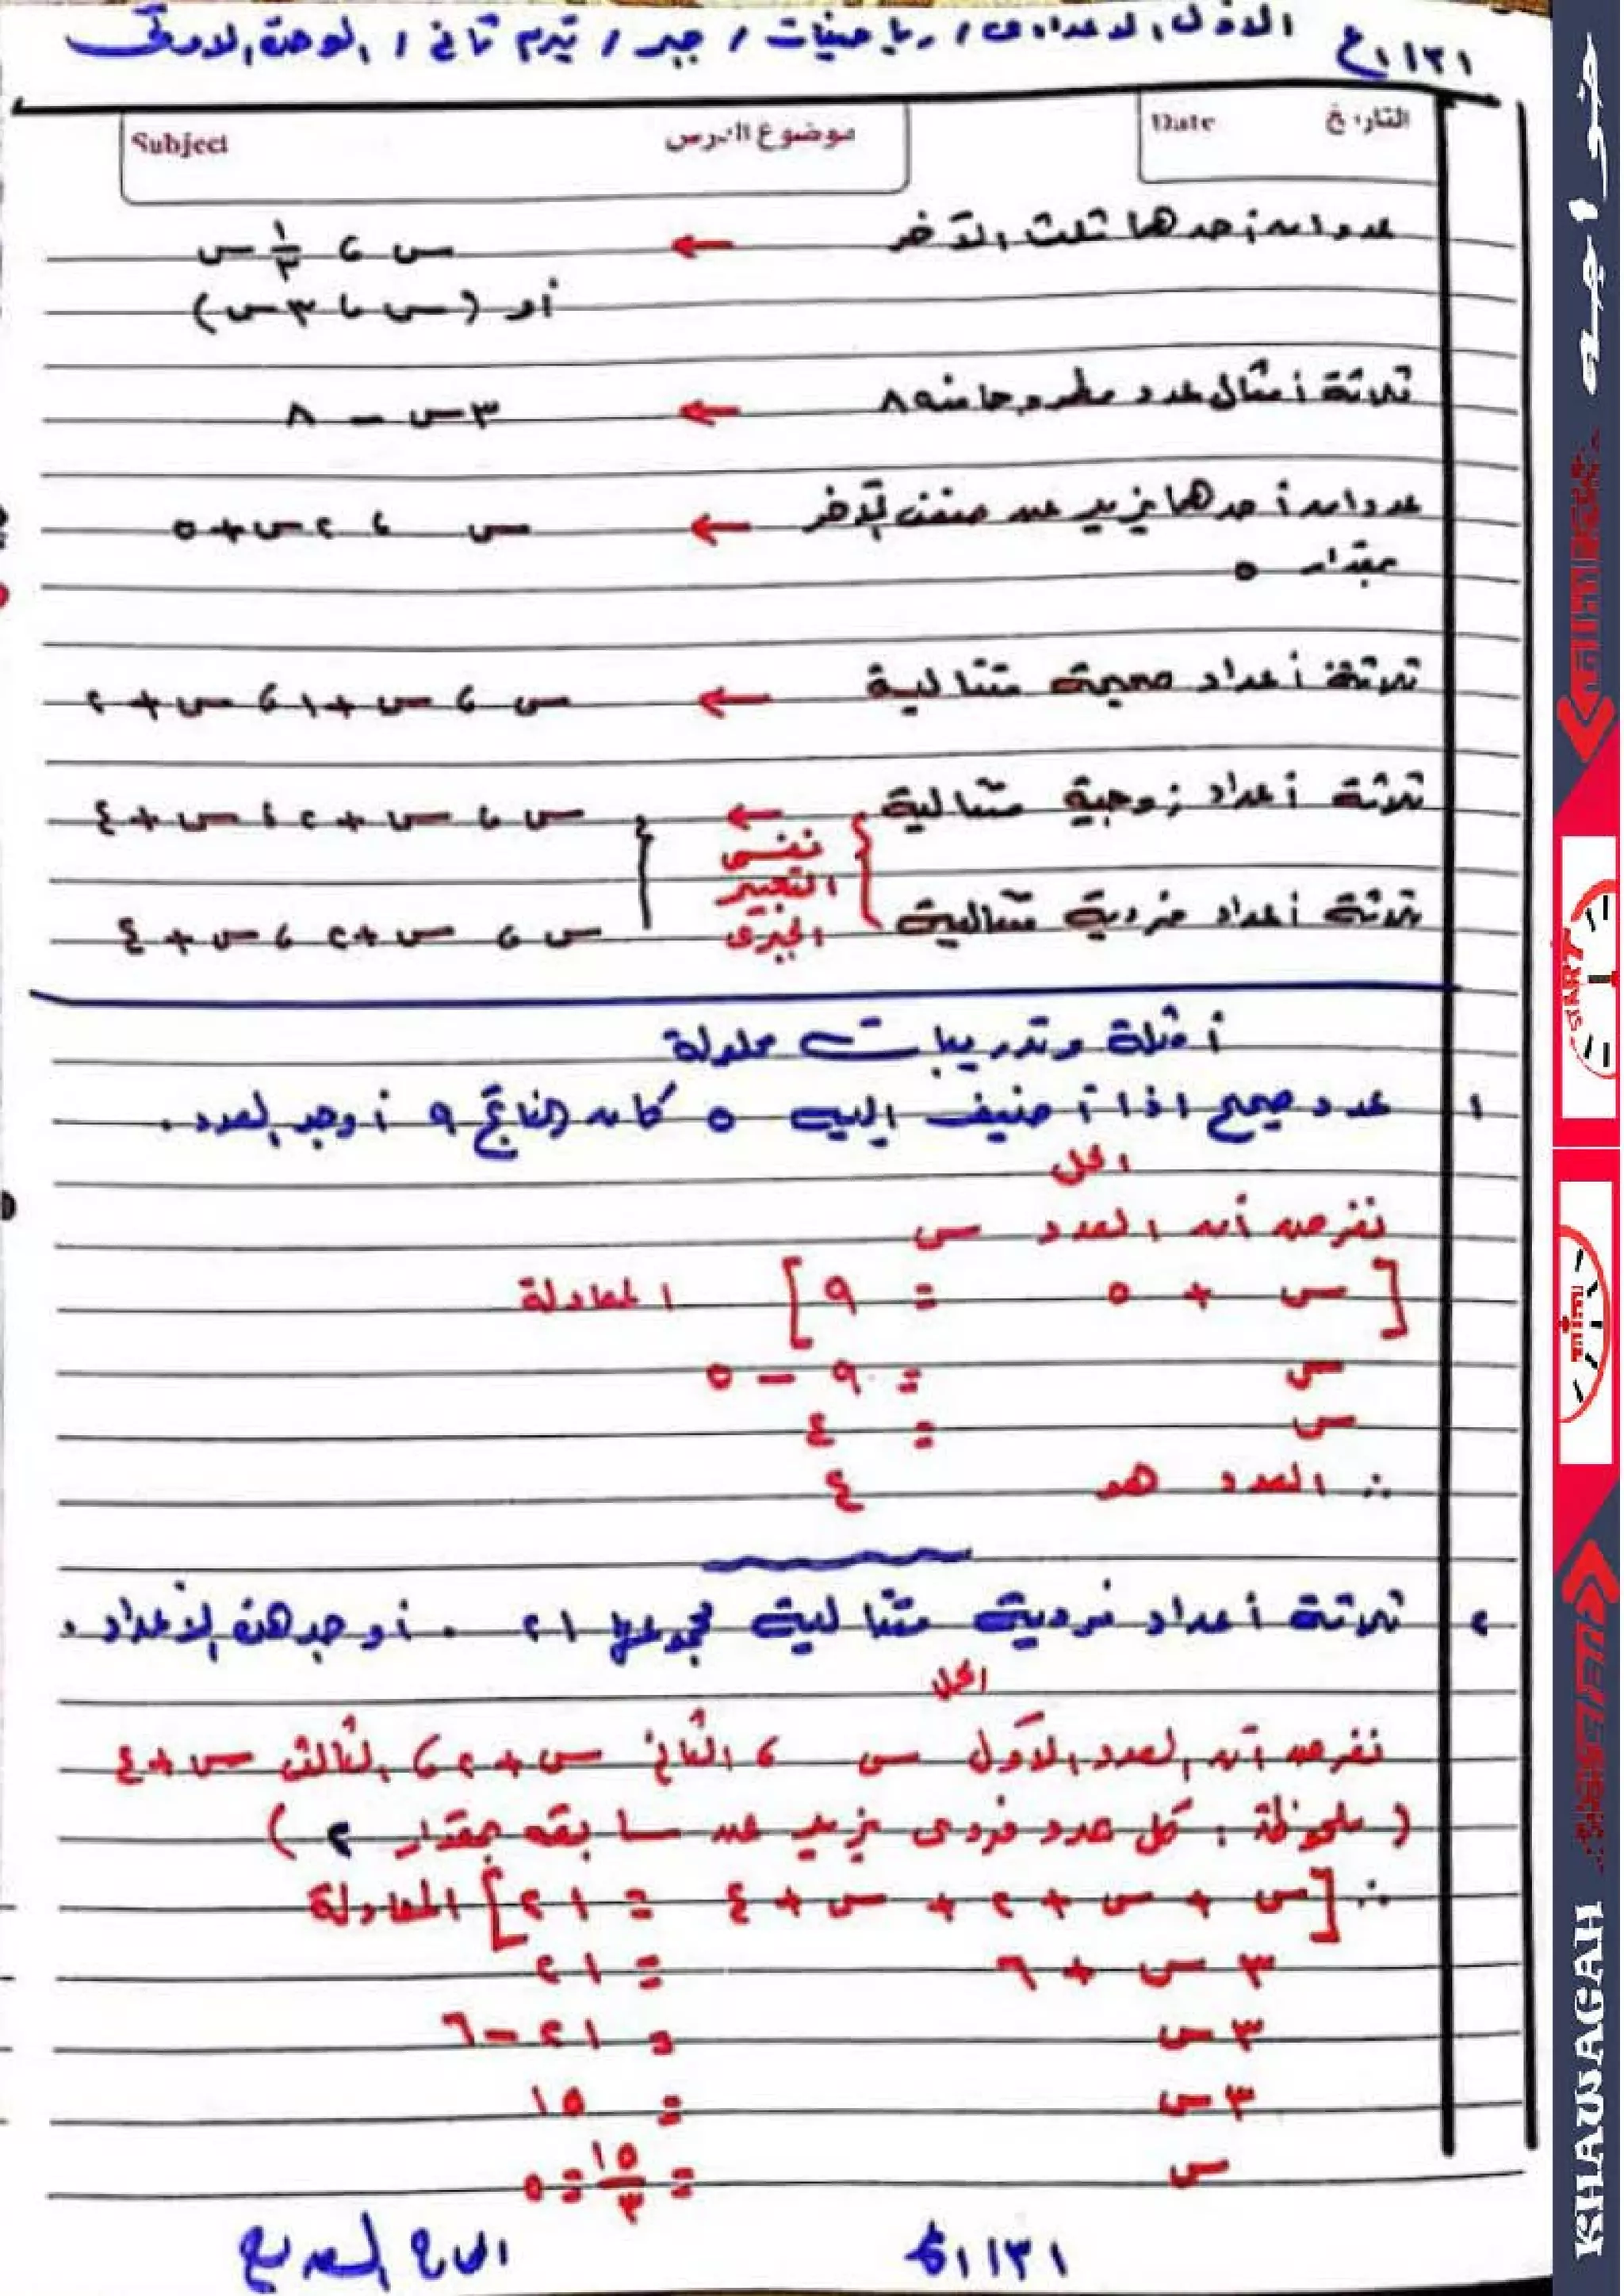 ١٣١/١ع الأول الاعدادى / رياضيات / جبر / تيرم ثانى / الوحدة الأولى
التاريخ Date موضوع الدرس Subject
عددان أحدهما ثلث الآخر ← س ، ١/٣ س
أو (س ، ٣س)
ثلاثة أمثال عدد مطروحا منه ٨ ← ٣س - ٨
عددان أحدهما يزيد عن ضعف الآخر ← س ، ٢س+٥
بمقدار ٥
ثلاثة أعداد صحيحة متتالية ← س ، س+١ ، س+٢
ثلاثة أعداد زوجية متتالية ← س ، س+٢ ، س+٤
نفس التعبير الجبرى
ثلاثة أعداد فردية متتالية س ، س+٢ ، س+٤
أمثلة وتدريبات محلولة
١ عدد صحيح اذا أضيف إليه ٥ كان الناتج ٩ أوجد العدد .
الحل
نفرض أن العدد س
[س + ٥ = ٩] المعادلة
س = ٩ - ٥
س = ٤
∴ العدد هو ٤
٢ ثلاثة أعداد فردية متتالية مجموعها ٢١ . أوجد هذه الأعداد .
الحل
نفرض أن العدد الأول س ، الثانى س+٢ ، الثالث س+٤
(ملحوظة : كل عدد فردى يزيد عن سابقه بمقدار ٢)
∴ [س + س + ٢ + س + ٤ = ٢١] المعادلة
٣س + ٦ = ٢١
٣س = ٢١ - ٦
٣س = ١٥
س = ١٥/٣ = ٥
خواجه
START
TIME
KHAWAGAH